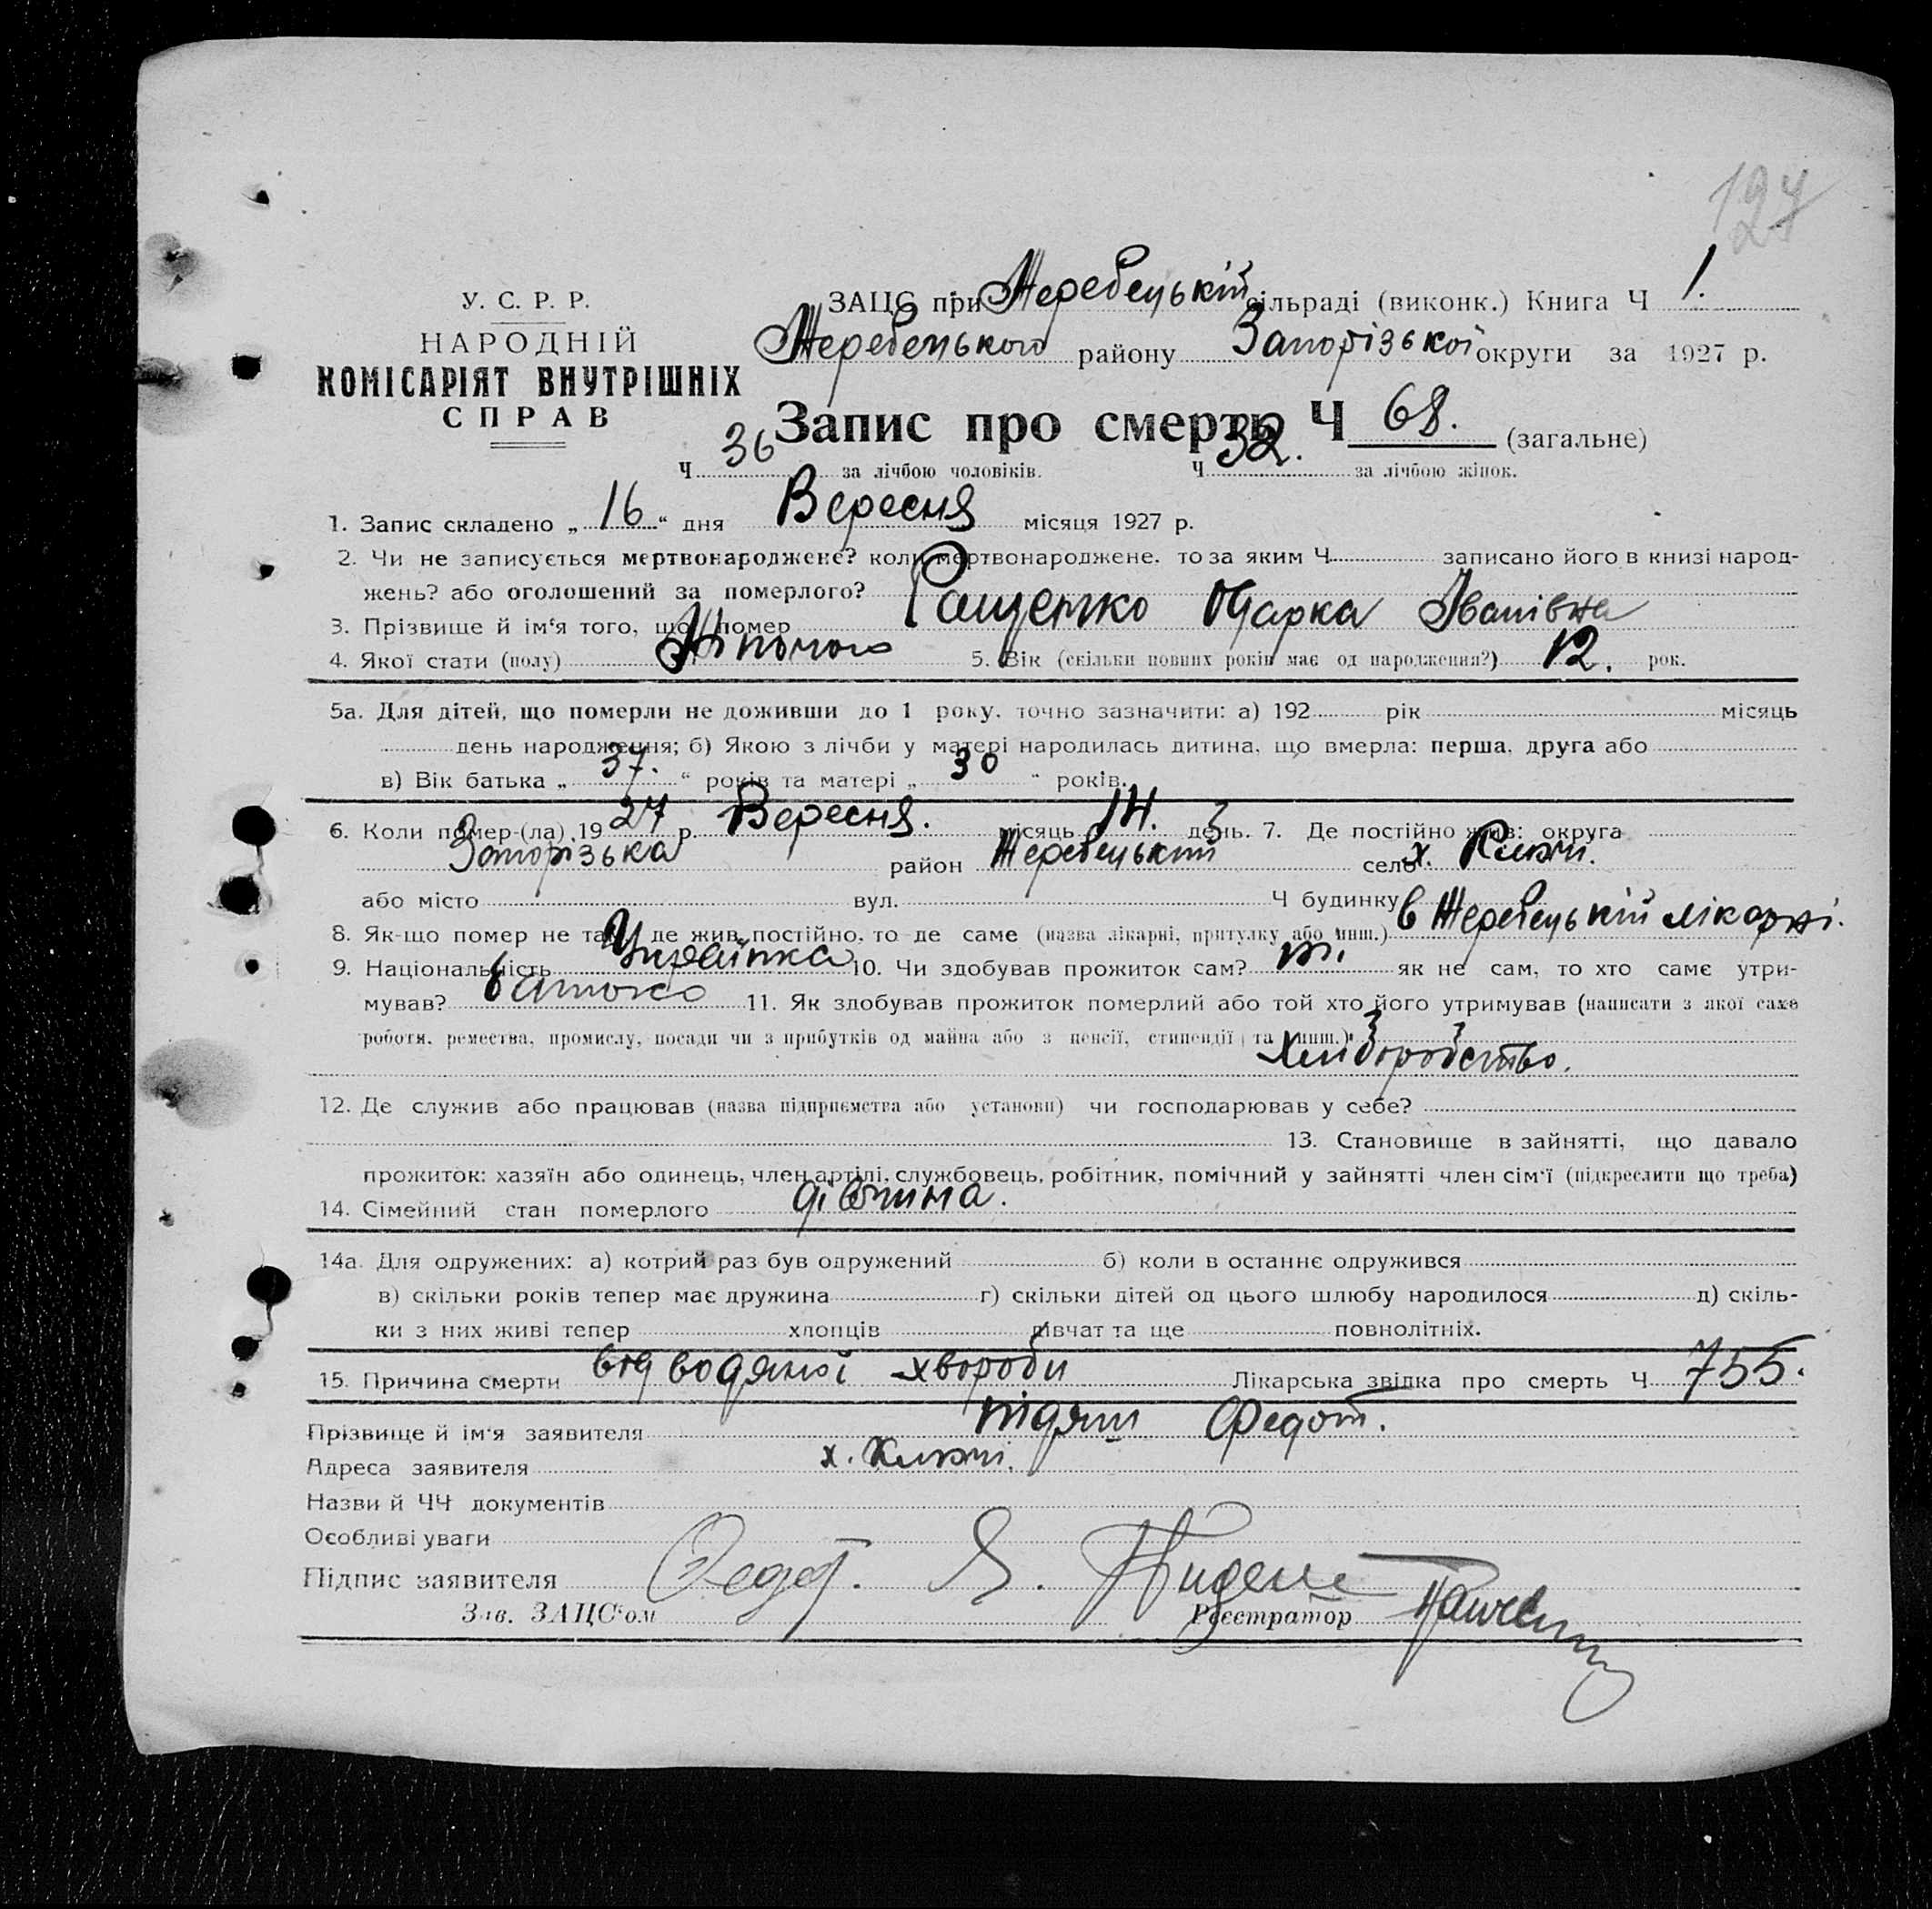 127
У. С. Р. Р.
НАРОДНІЙ
КОМІСАРІЯТ ВНУТРІШНІХ
СПРАВ
ЗАЦС при Жеребецькій сільраді (виконк.) Книга Ч 1.
Жеребецького району Запорізької округи за 1927 р.
Запис про смерть Ч 68. (загальне)
Ч 36 за лічбою чоловіків. Ч 32. за лічбою жінок.
1. Запис складено „ 16 “ дня Вересня місяця 1927 р.
2. Чи не записується мертвонароджене? коли мертвонароджене, то за яким Ч записано його в книзі народ-
жень? або оголошений за померлого?
3. Прізвище й ім‘я того, що помер Ращетко Одарка Іванівна
4. Якої стати (полу) Жіночого 5. Вік (скільки повних років має од народження?) 12. рок.
5а. Для дітей, що померли не доживши до 1 року, точно зазначити: а) 192 рік місяць
день народження; б) Якою з лічби у матері народилась дитина, що вмерла: перша, друга або
в) Вік батька „ 37. “ років та матері „ 30 “ років.
6. Коли помер-(ла) 19 27 р. Вересня. місяць 14. день. 7. Де постійно жив: округа
Запорізька район Жеребецький село х. Ключі.
або місто вул. Ч будинку
8. Як-що помер не там, де жив постійно, то де саме (назва лікарні, притулку або инш.) в Жеребецькій лікарні.
9. Національність Українка 10. Чи здобував прожиток сам? ні. як не сам, то хто саме утри-
мував? батько 11. Як здобував прожиток померлий або той хто його утримував (написати з якої саме
роботи, ремества, промислу, посади чи з прибутків од майна або з пенсії, стипендії та инш.)
хліборобство.
12. Де служив або працював (назва підприємства або установи) чи господарював у себе?
13. Становище в зайнятті, що давало
прожиток: хазяїн або одинець, член артілі, службовець, робітник, помічний у зайнятті член сім‘ї (підкреслити що треба)
14. Сімейний стан померлого дівчина.
14а. Для одружених: а) котрий раз був одружений б) коли в останнє одружився
в) скільки років тепер має дружина г) скільки дітей од цього шлюбу народилося д) скіль-
ки з них живі тепер хлопців дівчат та ще повнолітніх.
15. Причина смерти від водяної хвороби Лікарська звідка про смерть Ч 755.
Прізвище й ім‘я заявителя Федот.
Адреса заявителя х. Ключі.
Назви й ЧЧ документів
Особливі уваги
Підпис заявителя Федот. Я.
Зав. ЗАЦС‘ом Реєстратор